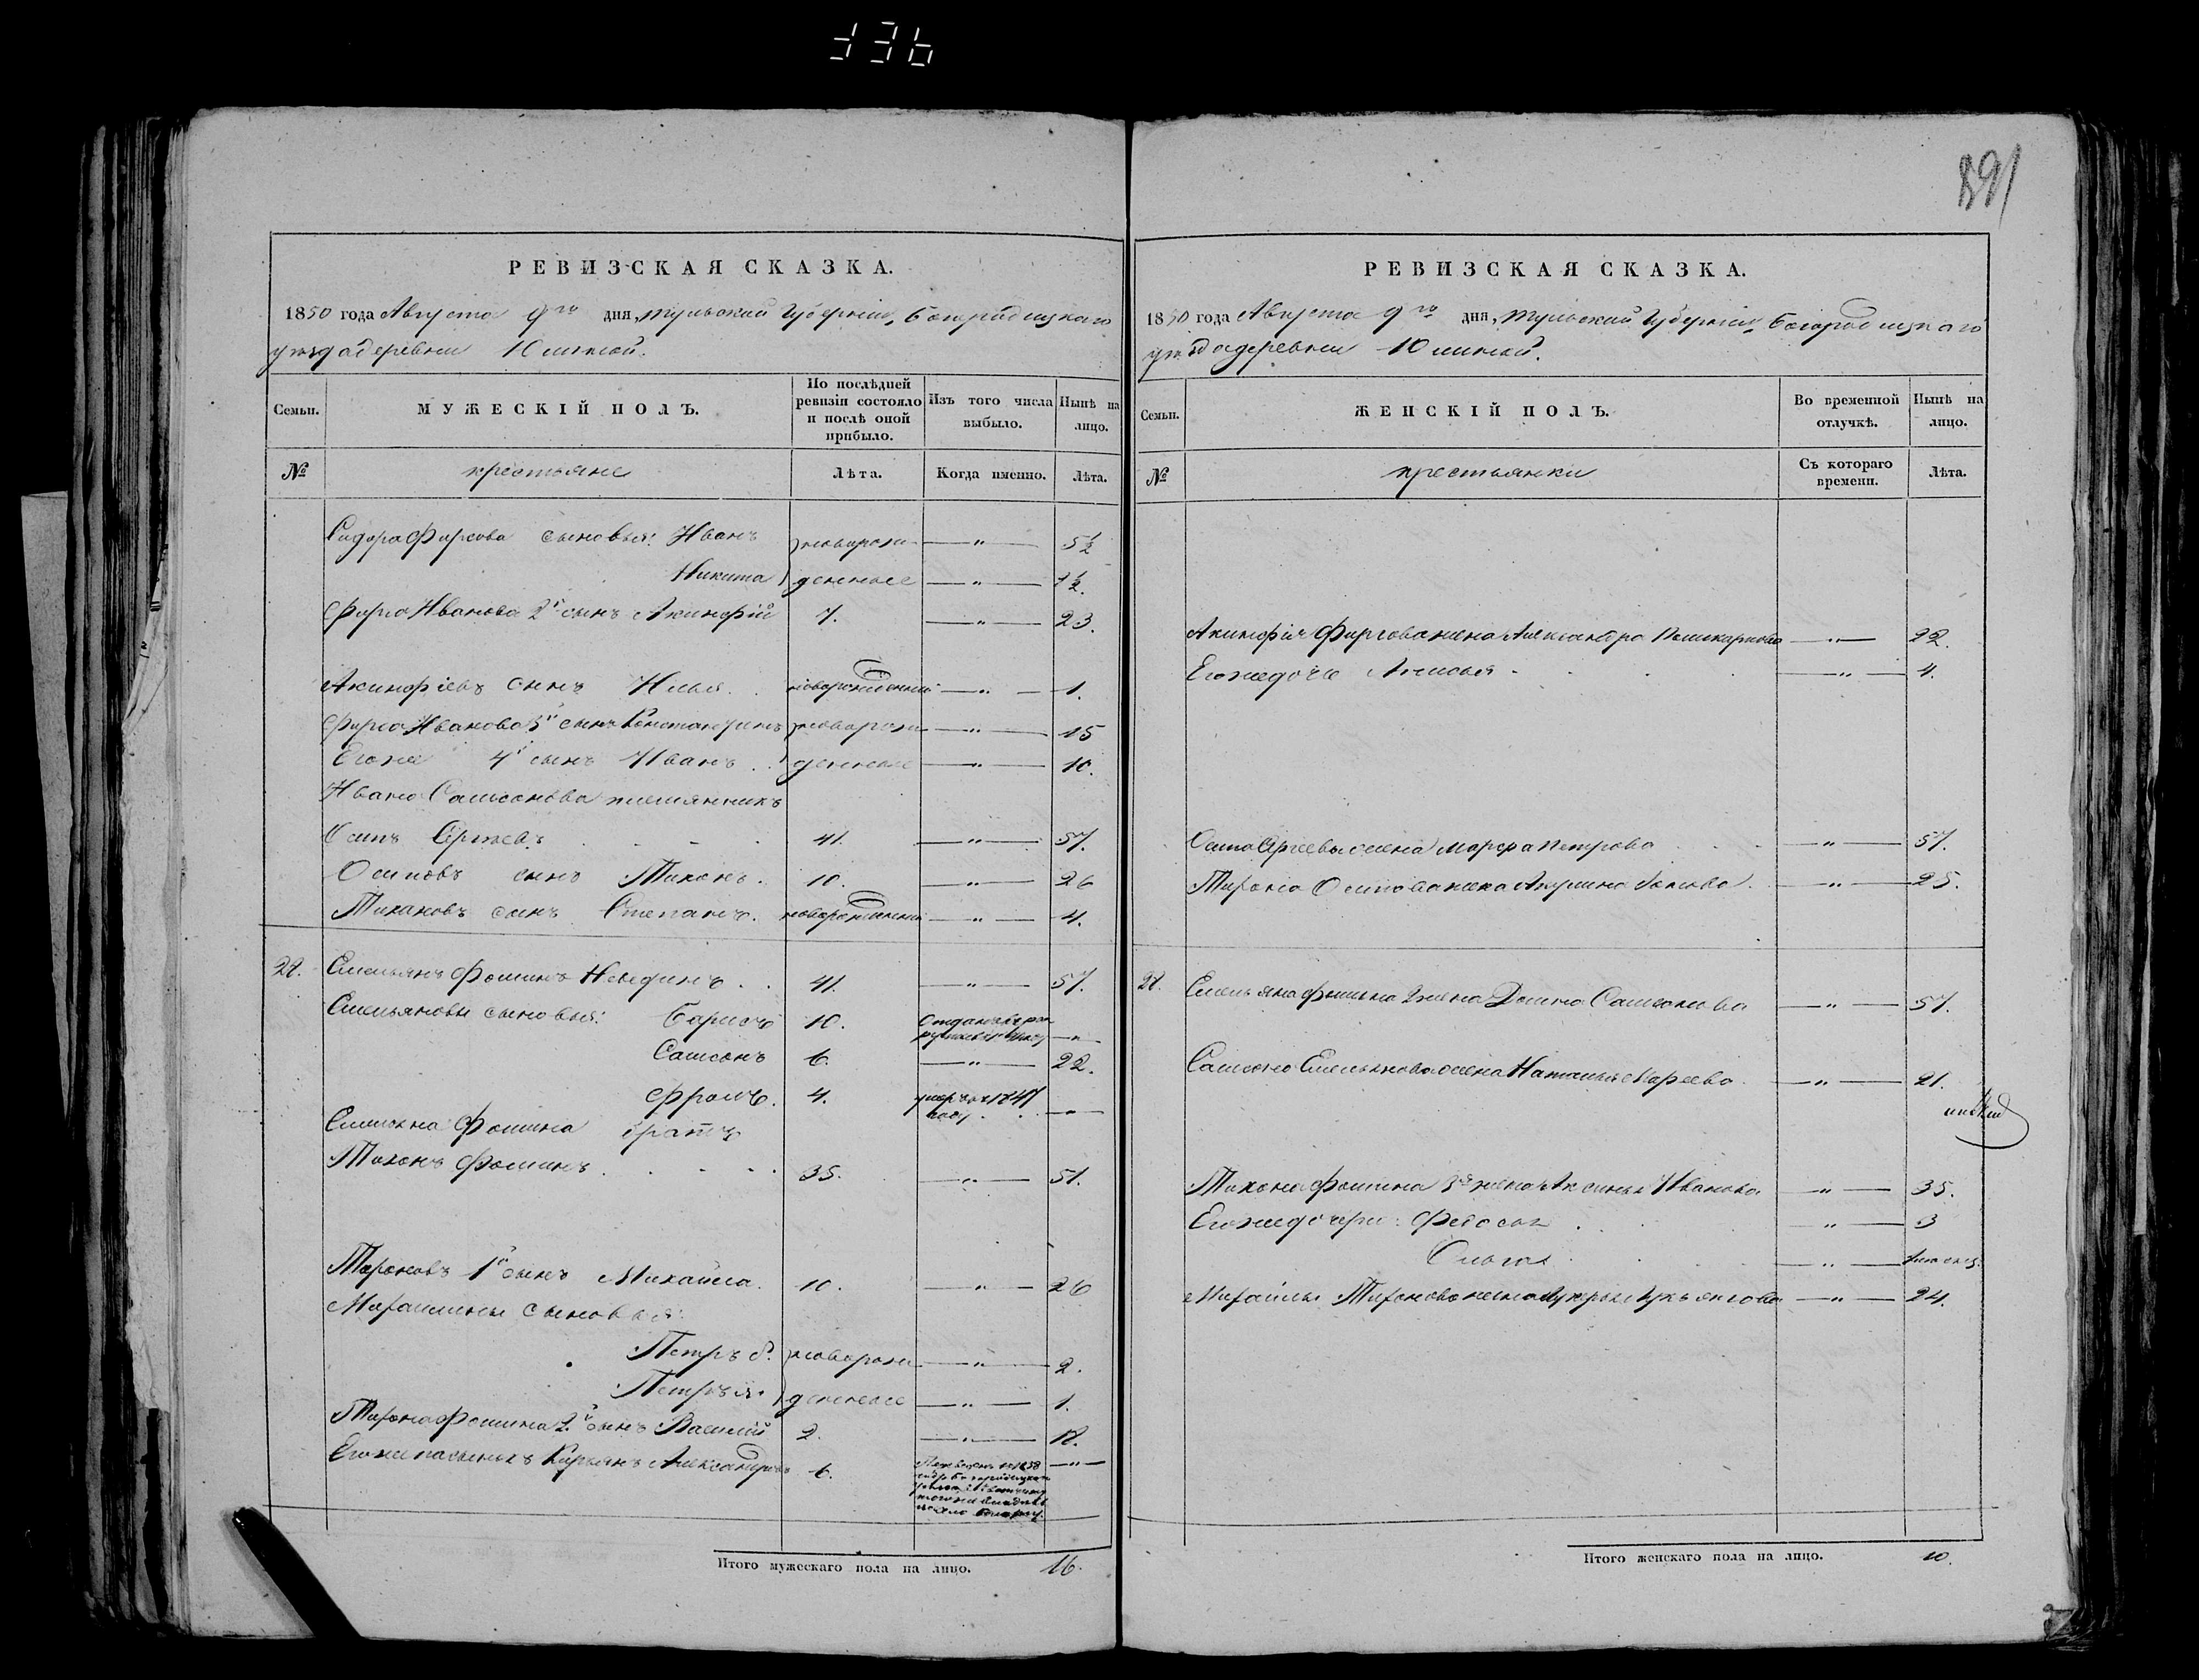 336
891
РЕВИЗСКАЯ СКАЗКА.
1850 года Августа 9го дня, Тульской Губернии, Богородицкаго
уезда деревни
МУЖЕСКІЙ ПОЛЪ.
Семьи.
По послѣдней ревизіи состояло и послѣ оной прибыло.
Изъ того числа выбыло.
Нынѣ на лицо.
№
крестьяне
Лѣта.
Когда именно.
Лѣта.
Сидора Фирсова сыновья: Иванъ новорож- — " — 5½
Никита денные — " — 1½.
Фирса Иванова 2й сынъ Акинфій 7. — " — 23.
Акинфіевъ сынъ Илья . . новорожденный — " — 1.
Фирса Иванова 3й сынъ Константинъ новорож- — " — 15
Его же 4й сынъ Иванъ . . денные — " — 10.
Ивана Самсонова племянникъ
Осипъ Сргеевъ 41. — " — 57.
Осиповъ сынъ Тихонъ. 10. — " — 26
Тихановъ сынъ Степанъ. новорожденный — " — 4.
Емельянъ Фоминъ . . 41. — " — 57.
Емельяновы сыновья: Борисъ 10. Отданъ въ рекруты — " —
Самсонъ 6. — " — 22.
Фролъ. 4. умеръ въ 1847 году . . — " —
Емельяна Фомина братъ
Тихонъ Фоминъ . . . . . 35. — " — 51.
Тихоновъ 1й сынъ Михайла. 10. — " — 26
Михайлины сыновья:
Петръ б. новорож- — " — 2.
Петръ м. денные — " — 1.
Тихона Фомина 2й сынъ Василий 2. — " — 18.
Его же пасынокъ Кирьянъ Александровъ 6. — " —
Итого мужескаго пола на лицо. 16.
РЕВИЗСКАЯ СКАЗКА.
1850 года Августа 9го дня, Тульской Губернии, Богородицкаго
уезда деревни
Семьи.
ЖЕНСКІЙ ПОЛЪ.
Во временной отлучкѣ.
Нынѣ на лицо.
№
крестьянки
Съ котораго времени.
Лѣта.
Акинфія Фирсова жена Александра — " — 22.
Его же дочь Анисья . — " — 4.
Осипа Сргеева жена Марфа Петрова — " — 57.
Тихона Осипова жена Акулина — " — 25.
Емельяна Фомина 2 жена Домна Самсонова — " — 57.
Самсона Емельянова жена Наталья — " — 21.
Тихона Фомина 3я жена Аксинья Иванова — " — 35.
Его же дочери: Федосья . — " — 3
Ольга . — " —
Михайлы Тихонова жена Лукерья Лукьянова — " — 24.
Итого женскаго пола на лицо. 10.